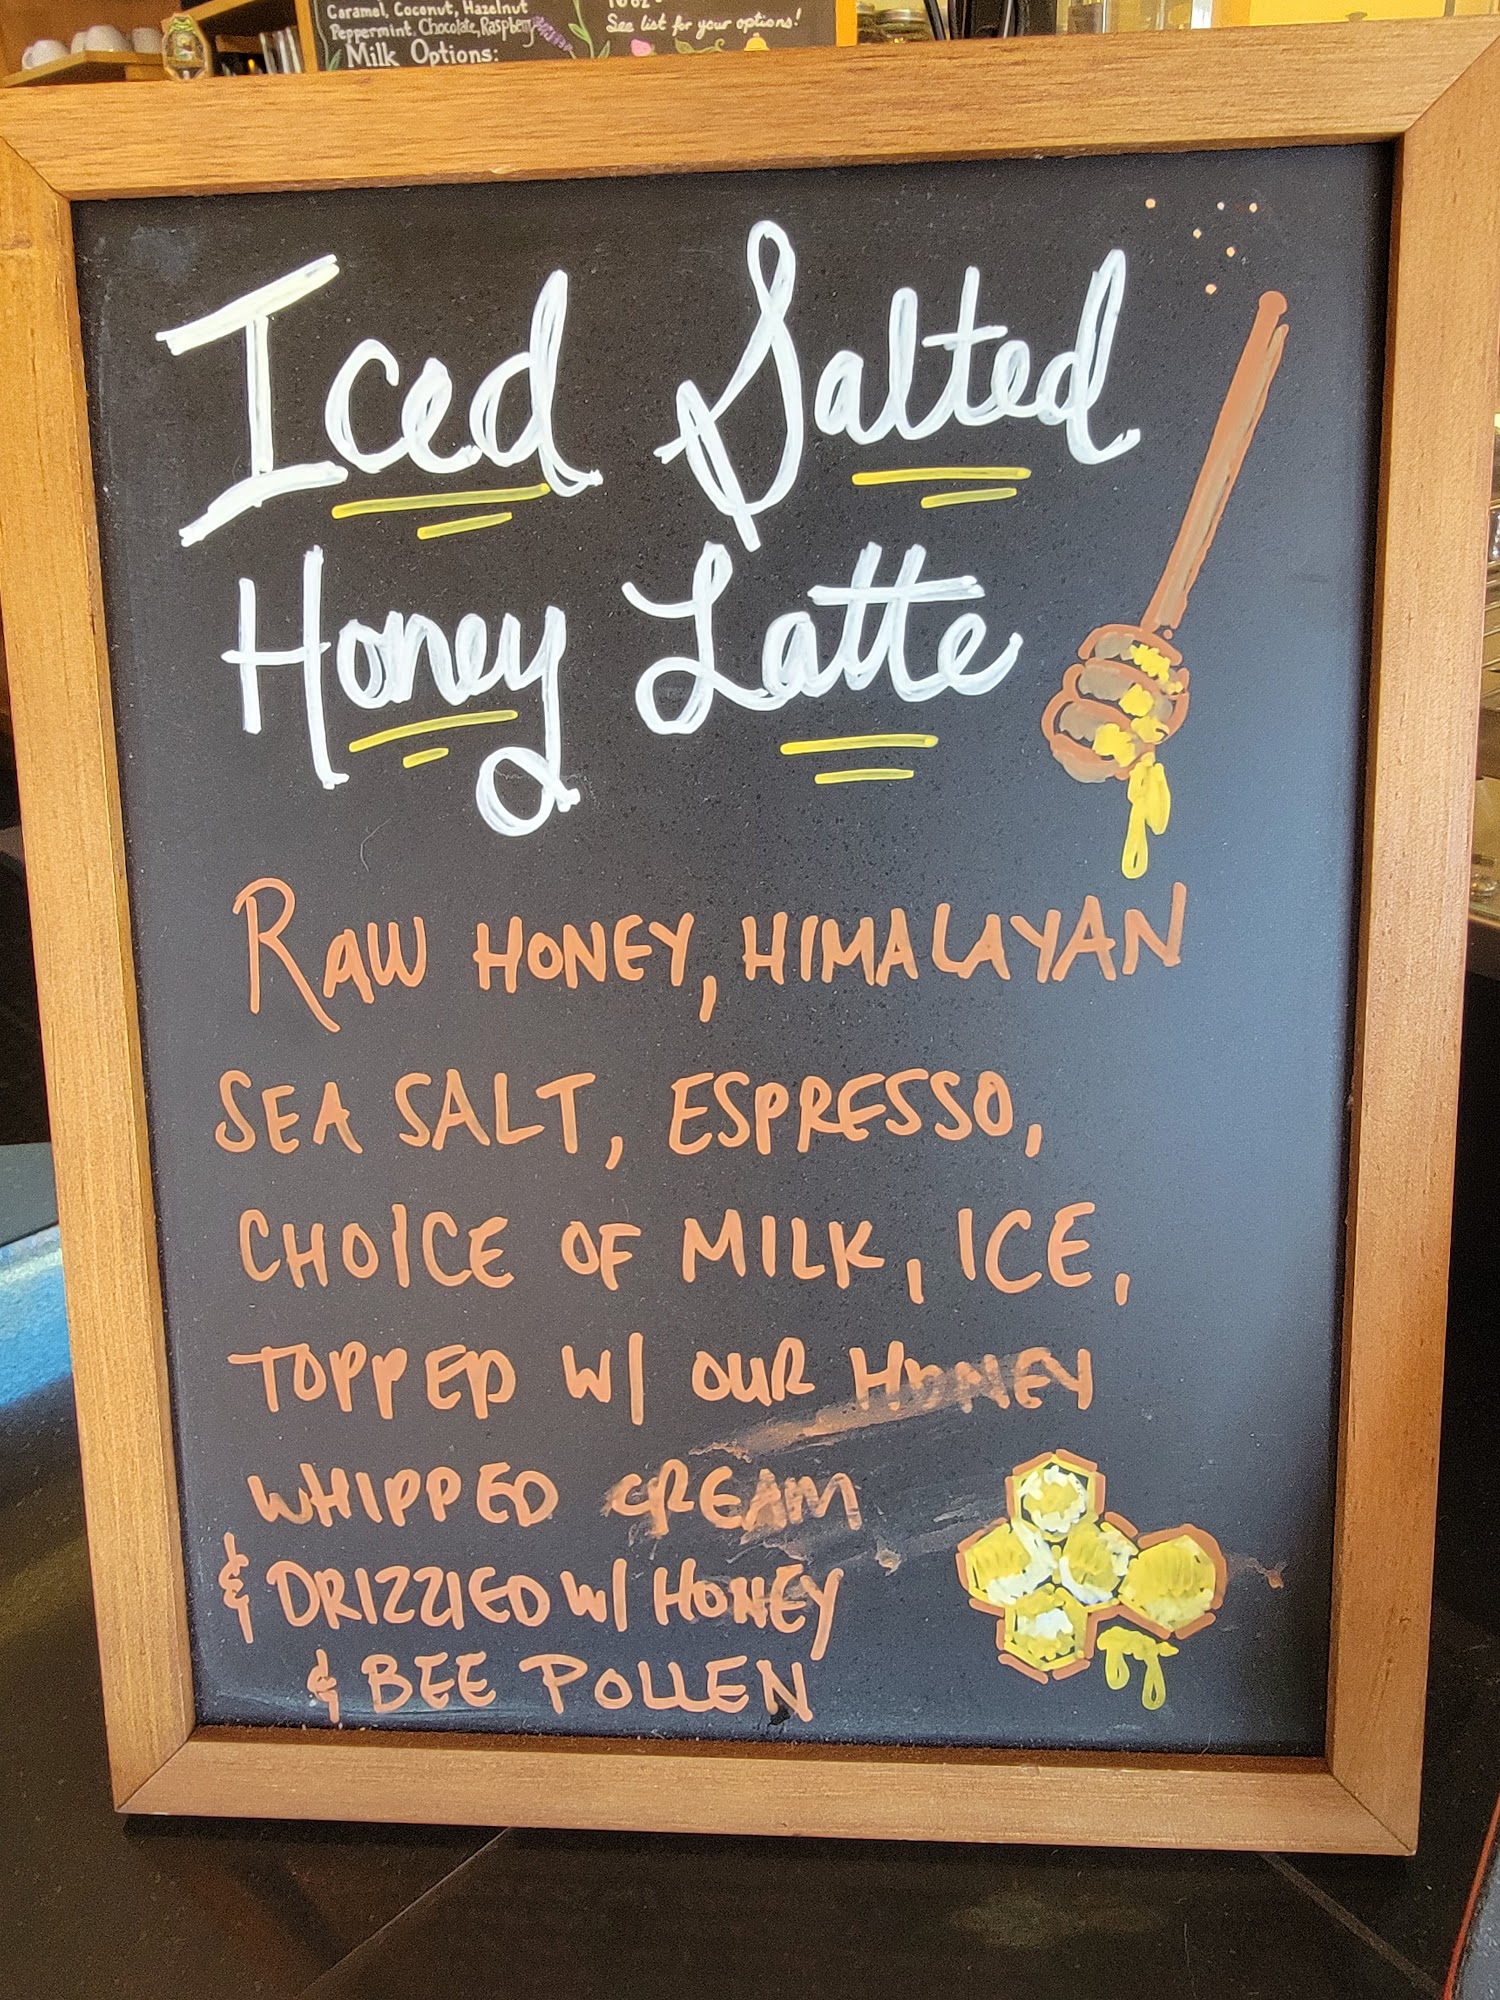 Caramel, Coconut, Hazelnut
Peppermint, Chocolate, Raspberry
Milk Options:
16oz
See list for your options!
Iced Salted
Honey Latte
RAW HONEY, HIMALAYAN
SEA SALT, ESPRESSO,
CHOICE OF MILK, ICE,
TOPPED W/ OUR HONEY
WHIPPED CREAM
& DRIZZLED W/ HONEY
& BEE POLLEN